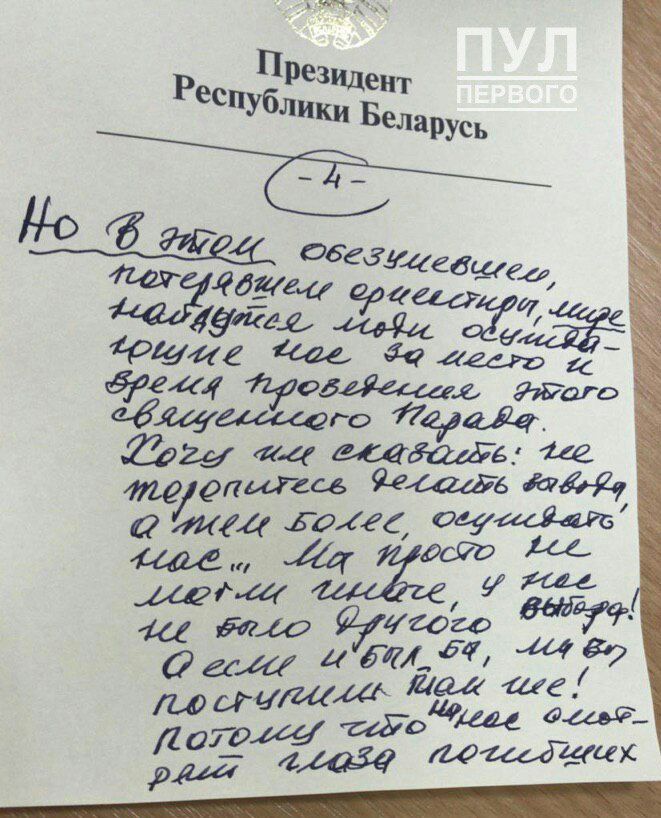 ПУЛ
ПЕРВОГО
Президент
Республики Беларусь
-4-
Но в этом обезумевшем,
потерявшем ориентиры, мире
найдутся люди осужда-
ющие нас за место и
время проведения этого
священного Парада.
Хочу им сказать: не
торопитесь делать выводы,
а тем более, осуждать
нас... Мы просто не
могли иначе, у нас
не было другого выбора!
А если и был бы, мы бы
поступили так же!
Потому что на нас смот-
рят глаза погибших